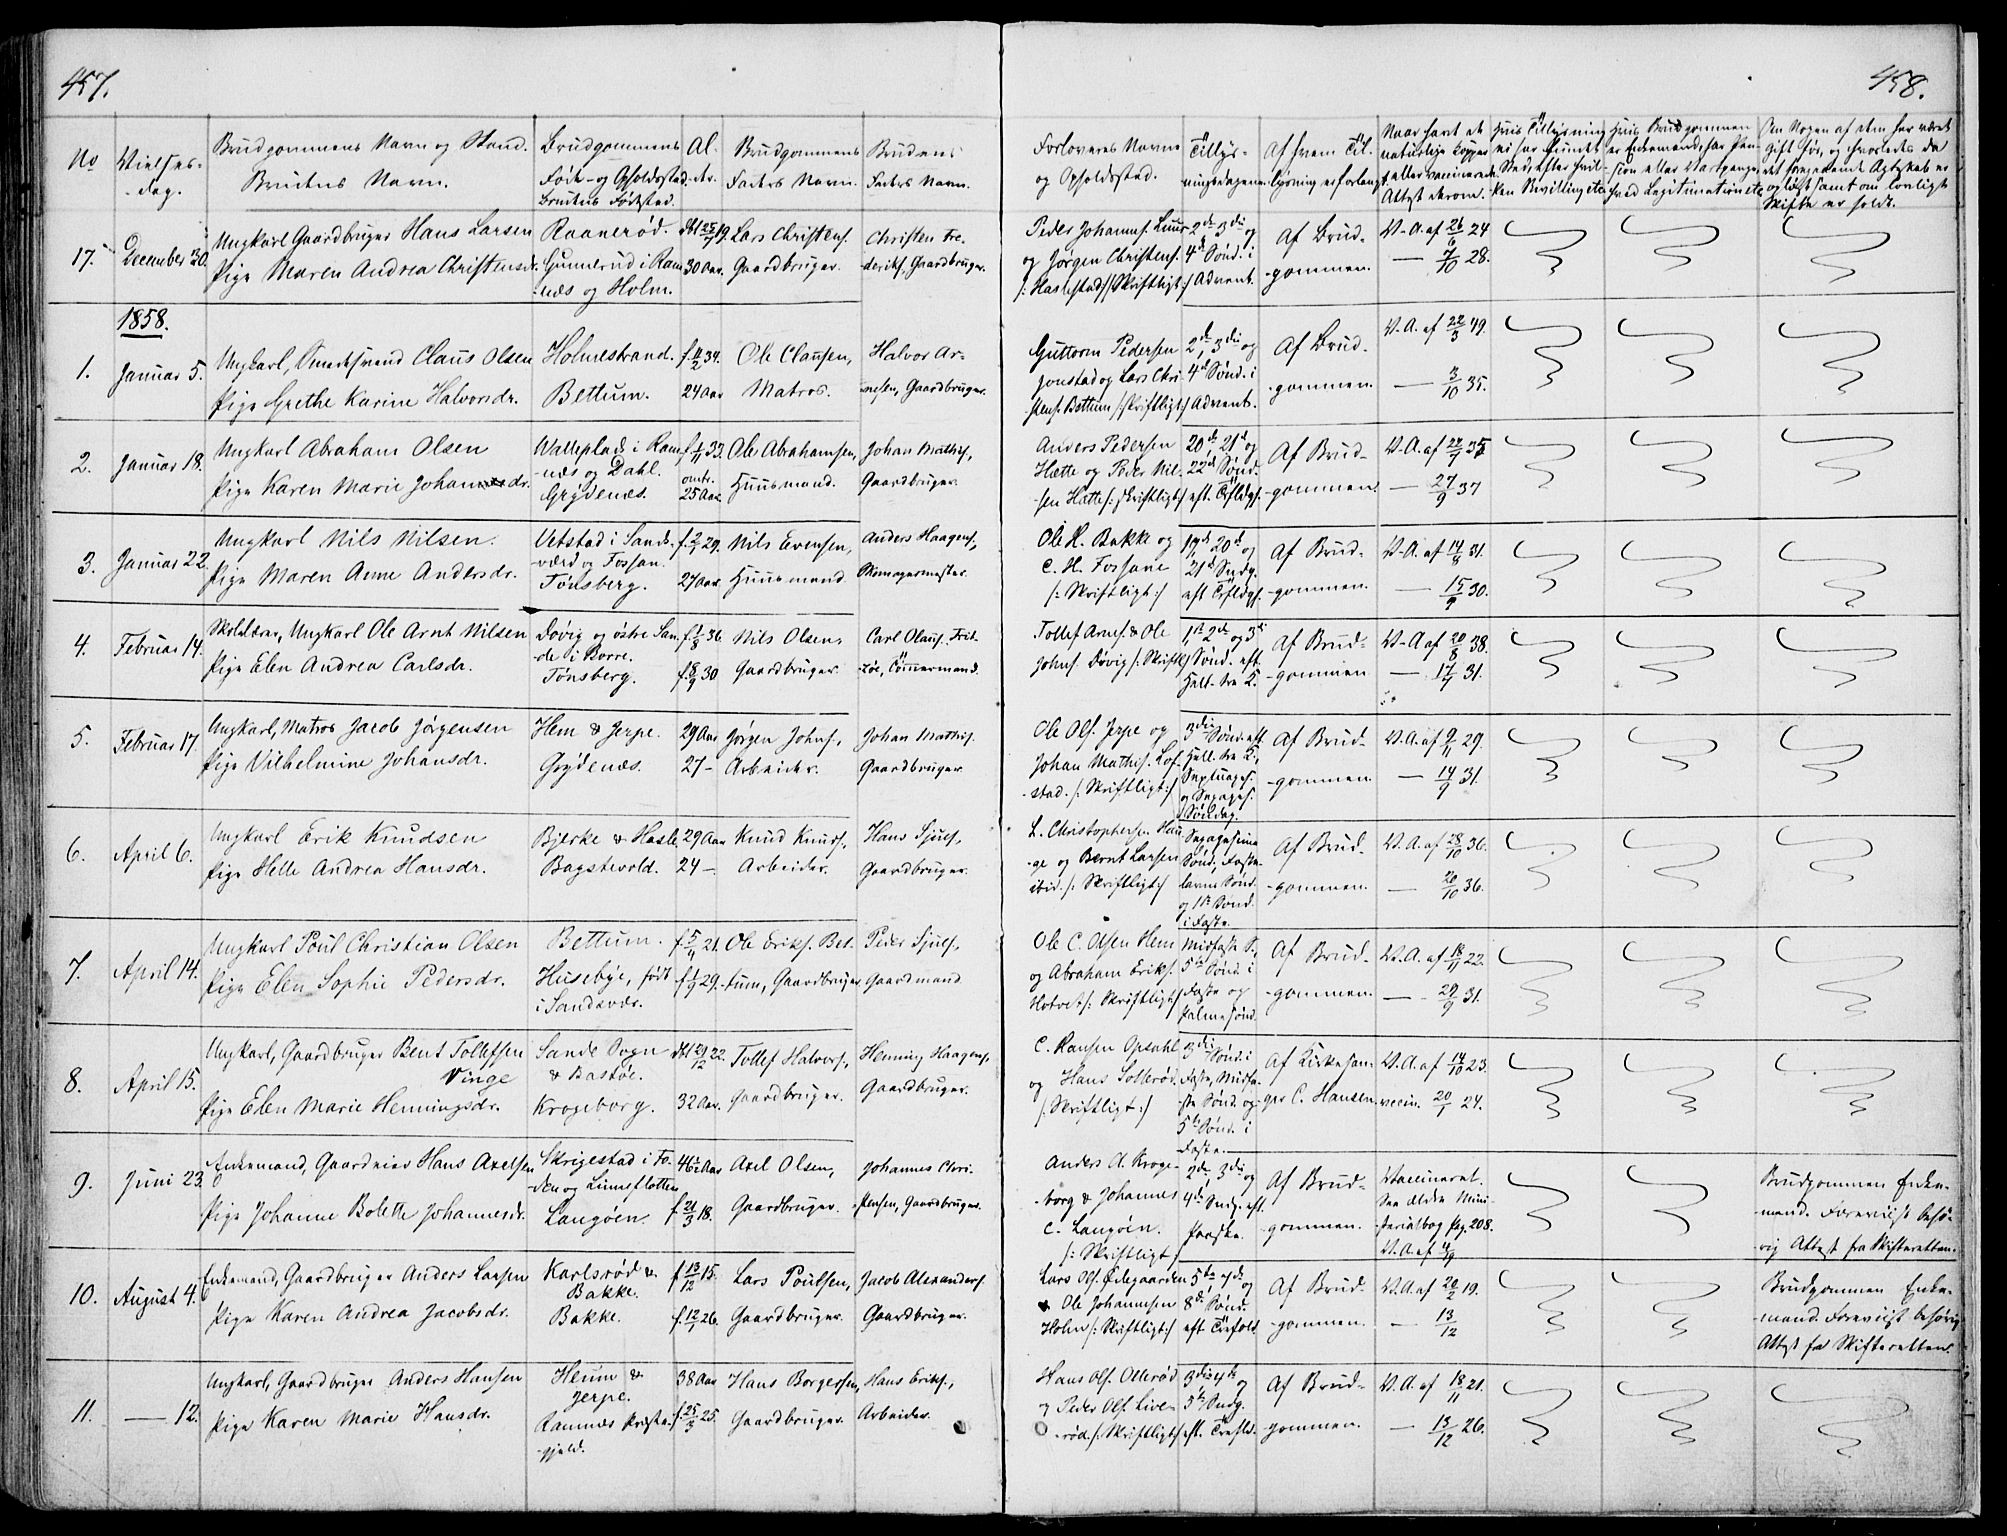 457.
458.
No
Vielses-
-dag.
Brudgommens Navn og Stand.
Brudens Navn.
Brudgommens
Føde- og Opholdssted.
Brudens Fødested.
Al-
-der.
Brudgommens
Faders Navn.
Brudens
Faders Navn.
Forlovernes Navne
og Opholdssted.
Tillys-
ningsdagene
Af hvem Til-
lysning er forlangt
17. December 30.
Ungkarl Gaardbruger Hans Larsen
Pige Maren Andrea Christensdr.
Raanerød.
Gunnerud i Ram-
næs og Holm.
30 Aar.
Lars Christens.
Gaardbruger.
Christen Fre-
deriks. Gaardbruger.
Peder Johannes.
og Jørgen Christens.
/:Hasle stad/ Skriftligt:/
2de, 3die og
4de Sønd. i
Advent.
Af Brud-
-gommen.
V.A. af 26/6 24
— 7/10 28.
1858.
1. Januar 5.
Ungkarl, Smedesvend Claus Olsen
Pige Grethe Karine Halvorsdr.
Holmestrand.
Bettum.
f. 11/2 34.
24 Aar
Ole Clausen,
Matros.
Halvor Ar-
-nesen, Gaardbruger.
Guttorm Pedersen
Jonstad og Lars Chri-
stens. Bettum /:skriftligt:/
2de, 3die og
4de Sønd. i
Advent.
Af Brud-
-gommen.
V.A. af 22/3 49.
— 3/10 35.
2. Januar 18.
Ungkarl Abraham Olsen
Pige Karen Marie Johannesdr.
Valleplads i Ram-
-næs og Dahl.
Grydenæs.
f. 1/11 33.
omtr.
25 Aar
Ole Abrahamsen,
Huusmand.
Johan Mathis.,
Gaardbruger.
Anders Pedersen
Hætte og Peder Nil-
sen Hætte /: skriftligt:/
20de, 21de og
22de Sønd.
eft. Trfldgh.
Af Brud-
-gommen.
— 27/9 37
3. Januar 22.
Ungkarl Nils Nilsen.
Pige Maren Anne Andersdr.
Vetstad i Sande-
værd og Fossan.
Tønsberg.
f. 2/1 29.
27 Aar
Nils Evensen,
Huusmand
Anders Haagens.,
Skomagermester.
Ole H. Bakke og
C. H. Fossane
/: Skriftligt:/
19de, 20de og
21de Sndg.
eft. Trfldgh.
Af Brud-
-gommen.
V.A. af 14/8 31.
— 15/9 30.
4. Februar 14.
Skolelærer, Ungkarl Ole Arnt Nilsen
Pige Elen Andrea Carlsdr.
Døvig og østre San-
-de i Borre.
Tønsberg.
f. 1/8 36.
f. 8/9 30
Nils Olsen,
Gaardbruger
Carl Olaus. Frit-
-zøe, Tømmermand.
Tollef Arnes. & Ole
Johns. Døvig /: Skriftl.:/
1ste, 2de og 3die
Sønd. eft.
Hell. tre K.
Af Brud-
-gommen
V.A. af 20/8 38.
— 17/7 31.
5. Februar 17.
Ungkarl, Matros Jacob Jørgensen
Pige Vilhelmine Johansdr.
Hem & Jerpe.
Grydenæs.
29 Aar
27 –
Jørgen Johns.,
Arbeider.
Johan Mathis.
Gaardbruger
Ole Ols. Jerpe og
Johan Mathis. Lof-
-stad. /: Skriftligt:/
3die Sønd. eft.
Hell. tre K.,
Septuages.
og Sexages.
Søndag.
Af Brud-
-gommen.
V.A. af 9/11 29.
— 14/9 31.
6. April 6.
Ungkarl Erik Knudsen
Pige Helle Andrea Hansdr.
Bjerke & Hasle
Bagstevold.
29 Aar
24 –
Knud Knuds.,
Arbeider.
Hans Sjuls.,
Gaardbruger.
L. Christophersen Hau-
-ge og Bernt Larsen
ibid. /: Skriftligt:/
Sexagesima
Sønd., Faste-
lavns Sønd.
og 1ste Sønd.
i Faste.
Af Brud-
-gommen.
V.A. af 28/10 36.
— 26/10 36.
7. April 14.
Ungkarl Poul Christian Olsen
Pige Elen Sophie Pedersdr.
Bettum.
Husebye, født
i Sandeværd.
f. 5/4 21.
f. 1/9 29.
Ole Eriks. Bet-
-tum, Gaardbruger
Peder Sjuls.,
Gaardmand
Ole C. Olsen Hem
og Abraham Eriks.
Hotvet /: Skriftligt:/
Midfaste S.,
5te Sønd. i
Faste og
Palmesønd.
Af Brud-
-gommen.
V.A. af 18/11 22.
— 29/9 31.
8. April 15.
Ungkarl, Gaardbruger Bent Tollefsen
Vinge
Pige Elen Marie Henningsdr.
Sande Sogn
& Bastøe.
Krogeborg.
32 Aar.
Tollef Halvors.,
Gaardbruger.
Henning Haagens.,
Gaardbruger.
C. Hansen Opsahl
og Hans Sollerød.
/: Skriftligt:/
3die Sønd. i
Faste, Midfa-
ste Sønd. og
5te Sønd. i
Faste.
Af Kirkesan-
ger C. Hansen
V.A. af 14/10 23.
vaccin. 20/1 24.
9. Juni 23.
Enkemand, Gaardeier Hans Axelsen
Pige Johanne Bolette Johannesdr.
Skrigestad i Fo-
-den og Linneflotten
Langøen.
46½ Aar
f. 21/3 18.
Axel Olsen,
Gaardbruger.
Johannes Chri-
stensen, Gaardbruger.
Anders A. Kroge-
-borg & Johannes
C. Langøen.
/: Skriftligt:/
2de, 3die og
4de Sndg. eft.
Paaske.
Af Brud-
gommen.
Vaccineret.
See ældre Mini-
sterialbog pag. 208.
V.A. af 4/9
Brudgommen Enke-
mand. Foreviist behø-
rig Attest fra Skifteretten.
10. August 4.
Enkemand, Gaardbruger Anders Larsen
Pige Karen Andrea Jacobsdr.
Karlsrød &
Bakke.
Bakke.
f. 13/12 15.
f. 12/1 26.
Lars Poulsen,
Gaardbruger.
Jacob Alexanders.
Gaardbruger.
Lars Ols. Ødegaarden
& Ole Johannesen
Holm /: Skriftligt:/
5te, 7de og
8de Sønd.
eft. Trefold.
Af Brud-
-gommen.
V.A. af 20/2 19.
— 13/12
Brudgommen Enke-
mand. Foreviist behørig
Attest fra Skifteretten.
11. — 12.
Ungkarl, Gaardbruger Anders Hansen
Pige Karen Marie Hansdr.
Heum &
Jerpe.
Ramnæs Præste-
-gjeld.
38 Aar
f. 25/3 25.
Hans Borgersen,
Gaardbruger.
Hans Eriks.,
Arbeider.
Hans Ols. Ollerød
og Peder Ols. Live-
-rød. /: Skriftligt:/
3die, 4de og
5te Sndg.
eft. Trefld.
Af Brud-
gommen.
V.A. af 18/11 21.
— 13/12 26.